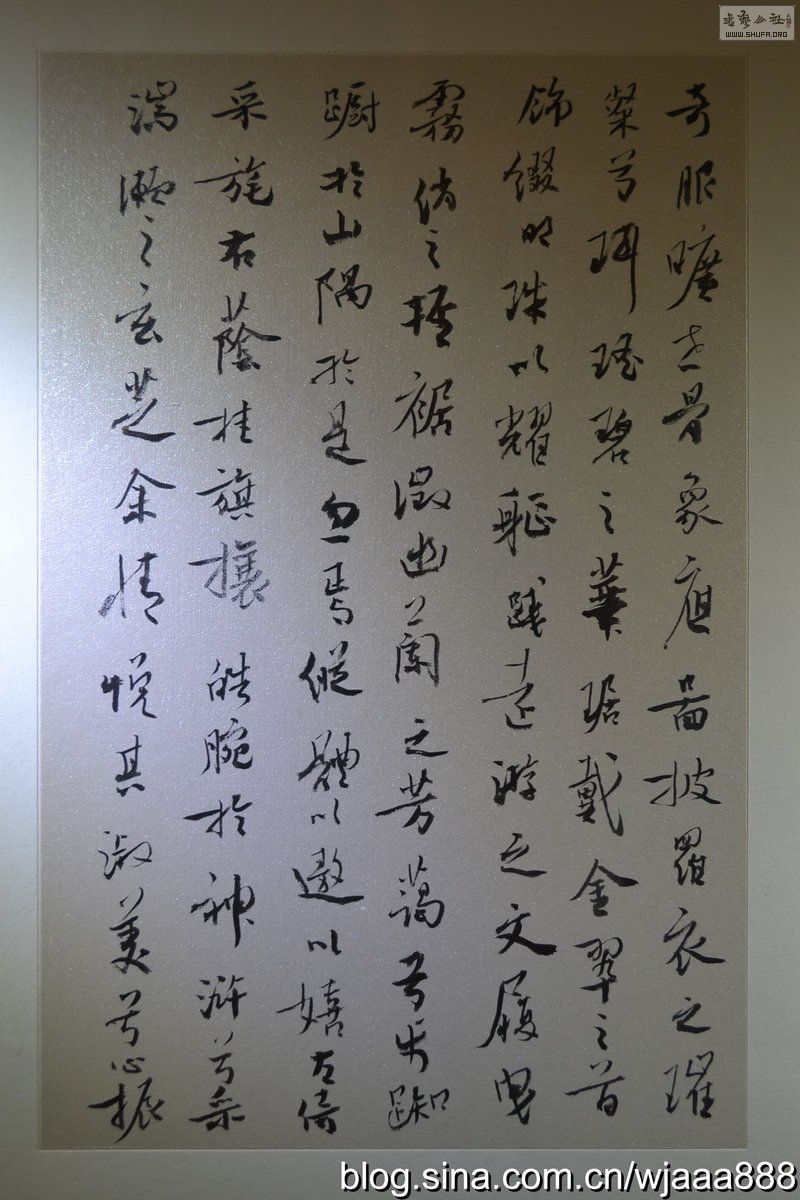 奇服曠世骨象應圖披羅衣之璀
粲兮珥瑤碧之華琚戴金翠之首
飾綴明珠以耀軀踐遠游之文履曳
霧綃之輕裾微幽蘭之芳藹兮步踟
躕於山隅於是忽焉縱體以遨以嬉左倚
采旄右蔭桂旗攘皓腕於神滸兮采
湍瀨之玄芝余情悅其淑美兮心振
書藝公社
WWW.SHUFA.ORG
blog.sina.com.cn/wjaaa888